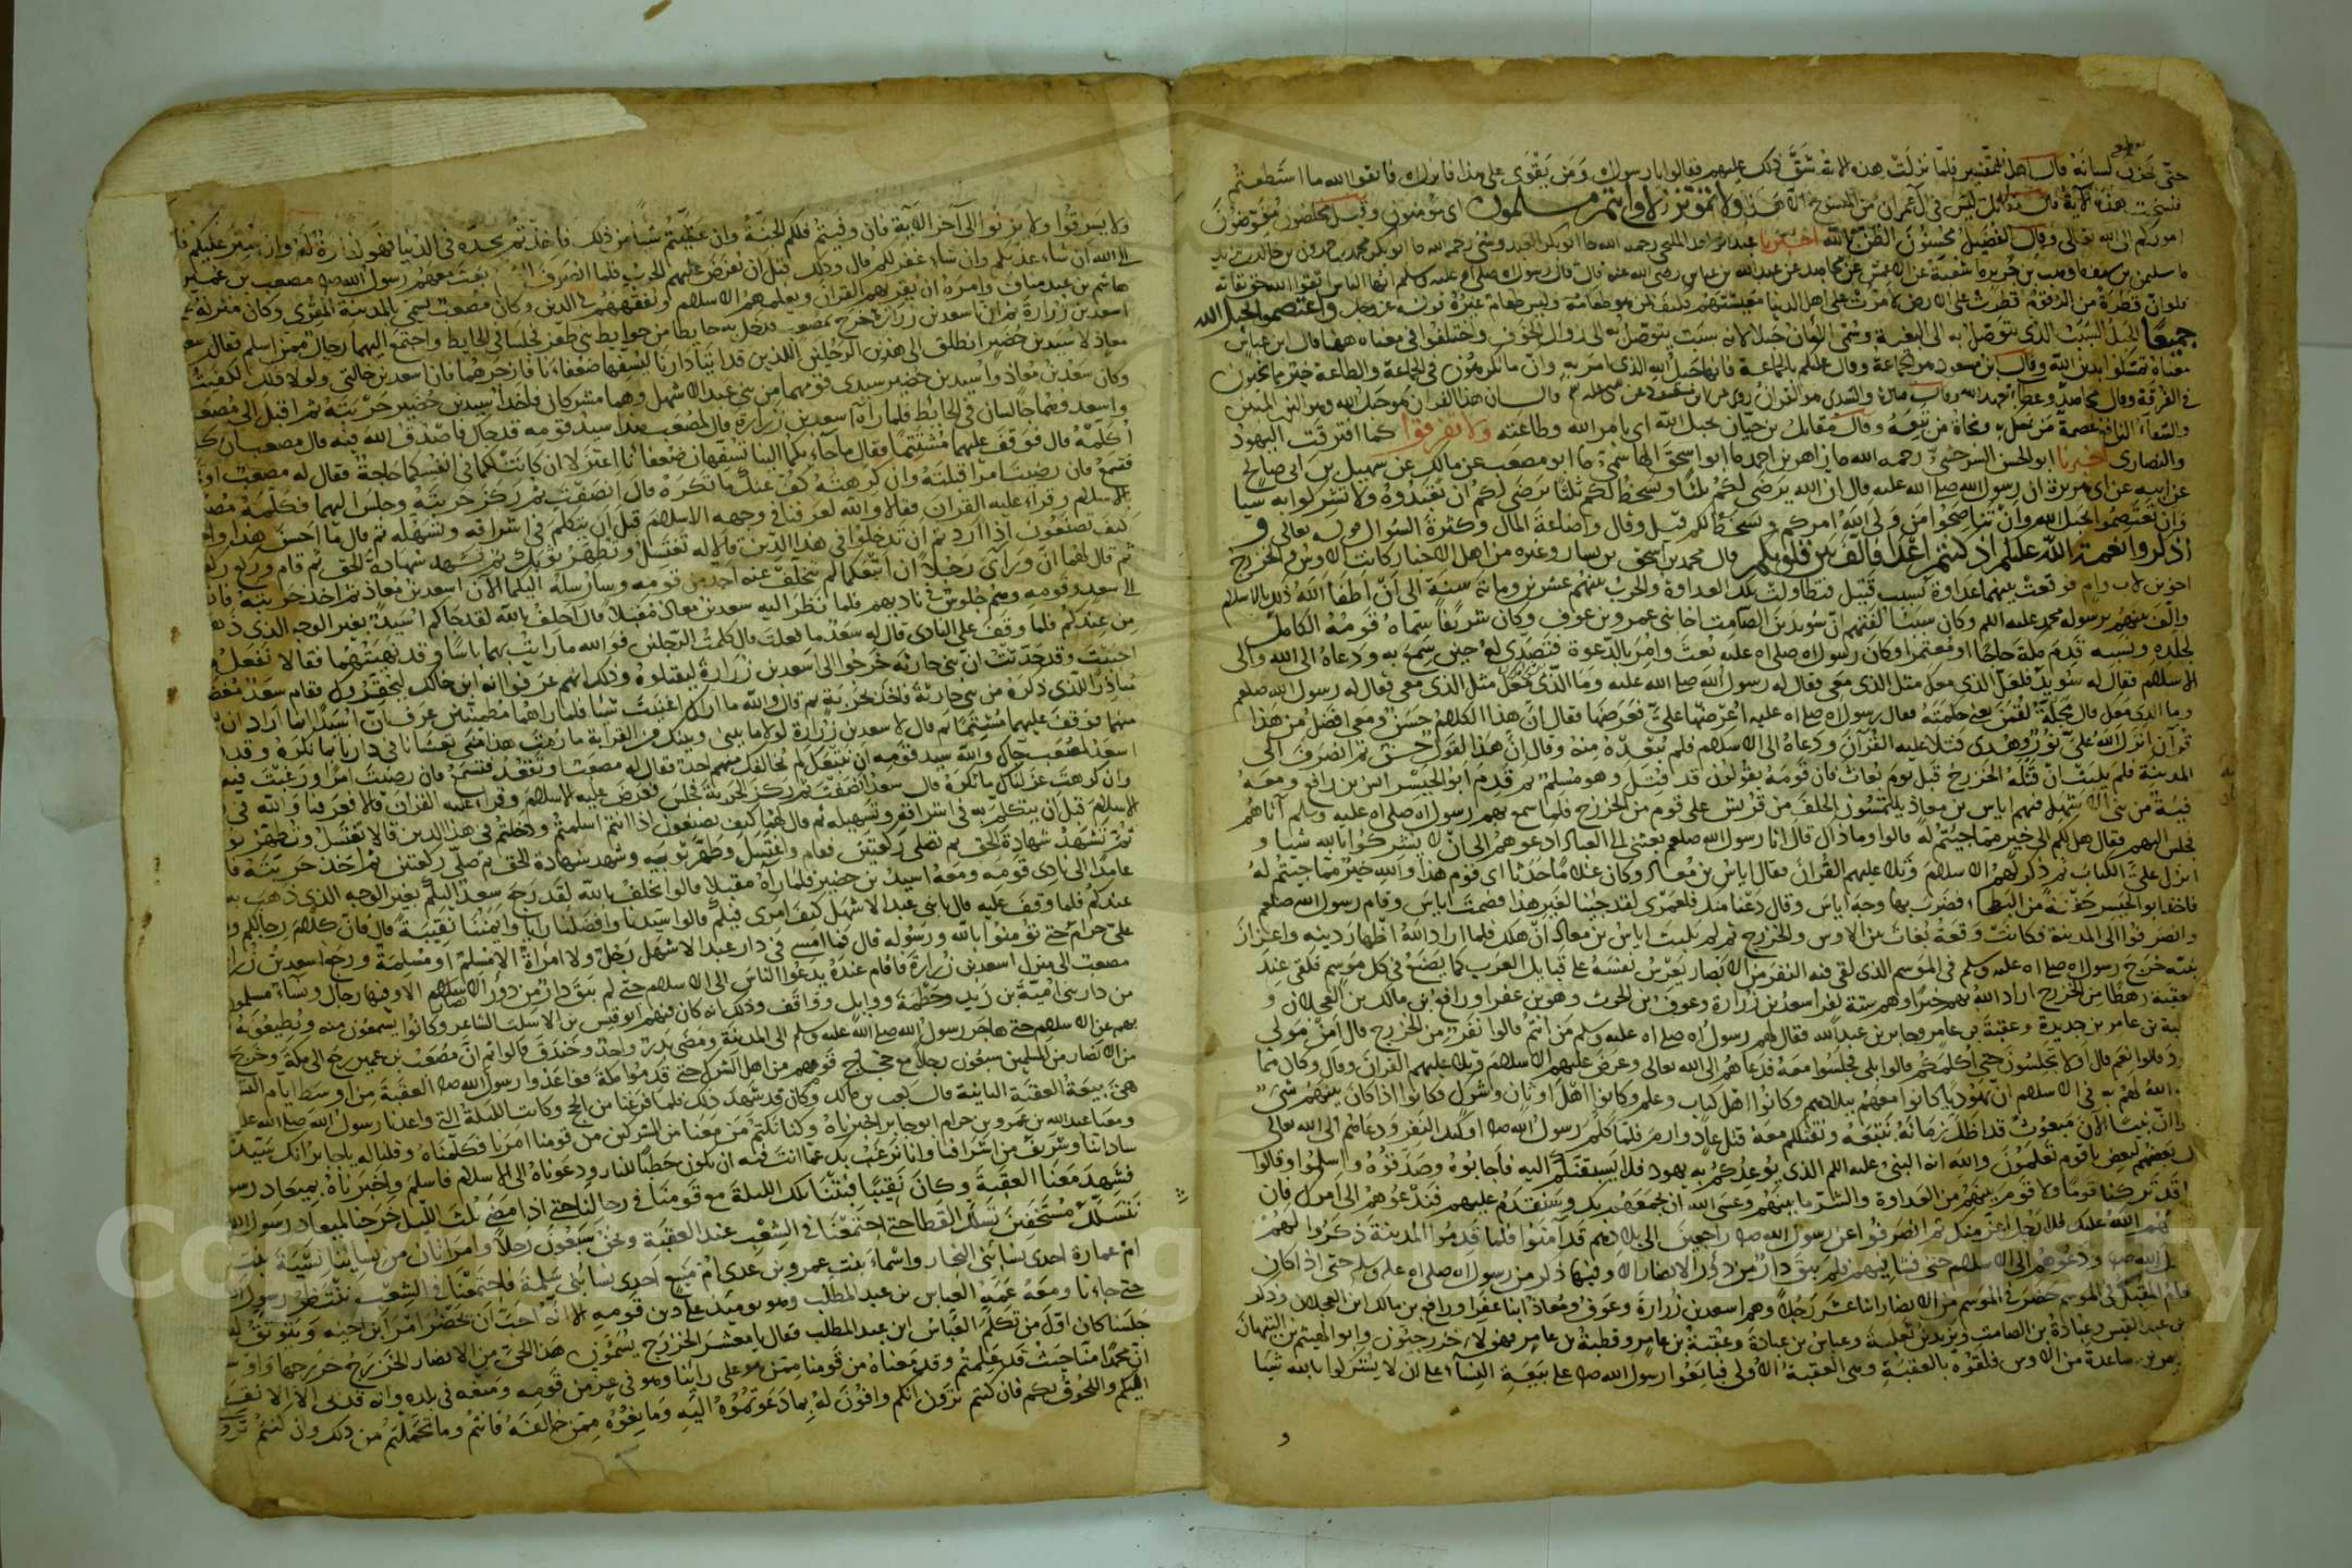 حتى يخزن لسانه قال اهل التفسير فلما نزلت هذه الاية شق ذلك عليهم فقالوا يا رسول الله ومن يقوى على هذا فانزل الله فاتقوا الله ما استطعتم
فنسخت هذه الاية قال مقاتل ليس في آل عمران من المنسوخ الا هذا ولا تموتن الا وانتم مسلمون اى مؤمنون وقيل مخلصون مفوضون
اموركم الى الله تعالى وقال الفضيل محسنون الظن بالله اخبرنا عبد الواحد المليحي رحمه الله
فلو ان قطرة من الزقوم قطرت على الارض لامرت على اهل الدنيا معيشتهم فكيف بمن هو طعامه وليس طعام غيره قوله عز وجل واعتصموا بحبل الله
جميعا الحبل السبب الذي يتوصل به الى البغية وسمي الايمان حبلا لانه سبب يتوصل به الى زوال الخوف واختلفوا في معناه ههنا قال ابن عباس
معناه تمسكوا بدين الله وقال ابن مسعود هو الجماعة وقال عليكم بالجماعة فانها حبل الله الذي امر به وان ما تكرهون في الجماعة والطاعة خير مما تحبون
في الفرقة وقال مجاهد وعطاء بعهد الله وقال قتادة والسدى هو القران ان هذا القران هو حبل الله وهو النور المبين
والشفاء النافع عصمة من تمسك به ونجاة من تبعه وقال مقاتل بن حيان بحبل الله اى بامر الله وطاعته ولا تفرقوا كما افترقت اليهود
والنصارى اخبرنا ابو الحسن السرخسي رحمه الله ما زاهر بن احمد ما ابو اسحق الهاشمي ما ابو مصعب عن مالك عن سهيل بن ابى صالح
عن ابيه عن ابى هريرة ان رسول الله صلى الله عليه قال ان الله يرضى لكم ثلثا ويسخط لكم ثلثا يرضى لكم ان تعبدوه ولا تشركوا به شيا
وان تعتصموا بحبل الله وان تناصحوا من ولى الله امركم ويسخط لكم قيل وقال واضاعة المال وكثرة السوال قوله تعالى و
اذكروا نعمة الله عليكم اذ كنتم اعدا فالف بين قلوبكم قال محمد بن اسحق بن يسار وغيره من اهل الاخبار كانت الاوس والخزرج
اخوين لاب وام فوقعت بينهما عداوة بسبب قتيل فتطاولت تلك العداوة والحرب بينهم عشرين ومائة سنة الى ان اطفا الله ذلك بالاسلام
والف بينهم برسوله محمد عليه السلم وكان سبب الفتهم ان سويد بن الصامت اخا بنى عمرو بن عوف وكان شريفا سماه قومه الكامل
لجلده ونسبه قدم مكة حاجا او معتمرا وكان رسول الله صلى الله عليه بعث وامر بالدعوة فتصدى له حين سمع به ودعاه الى الله والى
الاسلام فقال له سويد فلعل الذي معك مثل الذي معى فقال له رسول الله صلى الله عليه وما الذي معك مثل الذي معى فقال له رسول الله صلعم
وما الذي معك قال مجلة لقمن يعني حكمته فقال رسول الله صلى الله عليه اعرضها على فعرضها فقال ان هذا الكلام حسن ومعى افضل من هذا
قرآن انزله الله على نور وهدى فتلا عليه القرآن ودعاه الى الاسلام فلم يبعد منه وقال ان هذا القول حسن ثم انصرف الى
المدينة فلم يلبث ان قتله الخزرج قبل يوم بعاث فان قومه يقولون قد قتل وهو مسلم ثم قدم ابو الحيسر انس بن رافع ومعه
فتية من بنى الاشهل فيهم اياس بن معاذ يلتمسون الحلف من قريش على قوم من الخزرج فلما سمع بهم رسول الله صلى الله عليه وسلم آتاهم
فجلس اليهم فقال هل لكم الى خير مما جيتم له قالوا وما ذاك قال انا رسول الله صلعم بعثنى الى العباد ادعوهم الى ان لا يشركوا بالله شيا و
انزل على الكتاب ثم ذكر لهم الاسلام وتلا عليهم القران فقال اياس بن معاذ وكان غلاما حدثا اى قوم هذا والله خير مما جيتم له
فاخذ ابو الحيسر حفنة من البطحا فضرب بها وجه اياس وقال دعنا منك فلعمرى لقد جئنا لغير هذا فصمت اياس وقام رسول الله صلعم
وانصرفوا الى المدينة فكانت وقعة بعاث بين الاوس والخزرج ثم لم يلبث اياس بن معاذ ان هلك فلما اراد الله اظهار دينه واعزاز
نبيه خرج رسول الله صلى الله عليه وسلم في الموسم الذي لقى فيه النفر من الانصار يعرض نفسه على قبايل العرب كما يصنع في كل موسم فلقى عند
عقبة رهطا من الخزرج اراد الله بهم خيرا وهم ستة نفر اسعد بن زرارة وعوف بن الحرث وهو بن عفرا ورافع بن مالك بن العجلان و
بة بن عامر بن حديدة وعقبة بن عامر وجابر بن عبد الله فقال لهم رسول الله صلى الله عليه وسلم من انتم قالوا نفر من الخزرج قال امن موالى
قالوا نعم قال افلا تجلسون حتى اكلمكم قالوا بلى فجلسوا معه فدعاهم الى الله تعالى وعرض عليهم الاسلام وتلا عليهم القران وقال وكان مما
الله لهم به في الاسلام ان يهودا كانوا معهم ببلادهم وكانوا اهل كتاب وعلم وكانوا اهل اوثان وشرك فكانوا اذا كان بينهم شىء
ان نبيا الان مبعوث قد اظل زمانه نتبعه ونقتلكم معه قتل عاد وارم فلما كلم رسول الله اولئك النفر ودعاهم الى الله تعالى
بعضهم لبعض يا قوم تعلمون والله انه النبى عليه السلم الذي توعدكم به يهود فلا يسبقنكم اليه فاجابوه وصدقوه واسلموا وقالوا
قد تركنا قوما ولا قوم بينهم من العداوة والشر ما بينهم وعسى الله ان يجمعهم بك وسنقدم عليهم فندعوهم الى امرك فان
هم الله عليك فلا رجل اعز منك ثم انصرفوا عن رسول الله راجعين الى بلادهم قد آمنوا فلما قدموا المدينة ذكروا لهم
الله ودعوهم الى الاسلام حتى فشا فيهم فلم يبق دار من دور الانصار الا وفيها ذكر من رسول الله صلى الله عليه وسلم حتى اذا كان
عام المقبل في الموسم حضر في الموسم من الانصار اثنا عشر رجلا وهم اسعد بن زرارة وعوف ومعاذ ابنا عفرا ورافع بن مالك ابن العجلان وذكو
بن عبد القيس وعبادة بن الصامت ويزيد بن ثعلبة وعباس بن عبادة وعقبة بن عامر وقطبة بن عامر فهولاء خزرجيون وابو الهيثم بن التيهان
عويم بن ساعدة من الاوس فلقوه بالعقبة وهى العقبة الاولى فبايعوا رسول الله على بيعة النساء على ان لا يشركوا بالله شيا
ولا يسرقوا ولا يزنوا الى آخر الاية فان وفيتم فلكم الجنة وان غشيتم شيا من ذلك فاخذتم بحده في الدنيا فهو كفارة له وان ستر عليكم فا
الى الله ان شاء عذبكم وان شاء غفر لكم قال وذلك قبل ان يفرض عليهم الحرب فلما انصرف بعث معهم رسول الله مصعب بن عمير
هاشم بن عبد مناف وامره ان يقريهم القران ويعلمهم الاسلام ويفقههم في الدين وكان مصعب يسمى بالمدينة المقرى وكان منزله
اسعد بن زرارة ثم ان اسعد بن زرارة خرج بمصعب فدخل به حايطا من حوايط بنى ظفر فجلسا في الحايط واجتمع اليهما رجال ممن اسلم فقال سعد
معاذ لاسيد بن حضير انطلق الى هذين الرجلين اللذين قد اتيا دارنا ليسفها ضعفاءنا فازجرهما فان اسعد بن خالتى ولولا ذلك لكفيتك
وكان سعد بن معاذ واسيد بن حضير سيدى قومهما من بنى عبد الاشهل وهما مشركان فاخذ اسيد بن حضير حربته ثم اقبل الى مصعب
واسعد وهما جالسان في الحايط فلما رآه اسعد بن زرارة قال لمصعب هذا سيد قومه قد جاك فاصدق الله فيه قال مصعب ان
اكلمه قال فوقف عليهما متشتما فقال ما جاء بكما الينا تسفهان ضعفانا اعتزلا ان كانت لكما في انفسكما حاجة فقال له مصعب او
فتسمع فان رضيت امرا قبلته وان كرهته كف عنك ما تكره قال انصفت ثم ركز حربته وجلس اليهما فكلمه مصعب
بالاسلام وقرأ عليه القران فقالا والله لعرفنا في وجهه الاسلام قبل ان يتكلم في اشراقه وتسهله ثم قال ما احسن هذا
كيف تصنعون اذا اردتم ان تدخلوا في هذا الدين قالا له تغتسل وتطهر ثوبك ثم تشهد شهادة الحق ثم قام وركع
ثم قال لهما ان ورآى رجلا ان اتبعكما لم يتخلف عنه احد من قومه وسارسله اليكما الان اسعد بن معاذ ثم اخذ حربته
الى سعد وقومه وهم جلوس في ناديهم فلما نظر اليه سعد بن معاذ مقبلا قال احلف بالله لقد جاكم اسيد بغير الوجه الذي ذهب
من عندكم فلما وقف على النادى قال له سعد ما فعلت قال كلمت الرجلين فوالله ما رايت بهما باسا وقد نهيتهما فقالا نفعل
احببت وقد حدثت ان بنى حارثه خرجوا الى اسعد بن زرارة ليقتلوه وذلك انهم عرفوا انه ابن خالك ليخفروك فقام سعد مغضبا
مبادرا للذي ذكره من بنى حارثة فاخذ الحربة ثم قال والله ما اراك اغنيت شيا فلما رآهما مطمئنين عرف ان اسيدا انما اراد ان
منهما فوقف عليهما متشتما ثم قال لاسعد بن زرارة لولا ما بينى وبينك من القرابة ما رمت هذا منى تغشانا في دارنا بما نكره وقد
اسعد لمصعب جاك والله سيد قومه ان يتبعك لم يخالفك منهم احد فقال له مصعب او تقعد فتسمع فان رضيت امرا ورغبت فيه
وان كرهت عزلنا عنك ما تكره قال سعد انصفت ثم ركز الحربة فجلس فعرض عليه الاسلام وقرأ عليه القران قالا فعرفنا والله في
الاسلام قبل ان يتكلم به في اشراقه وتسهيله ثم قال لهما كيف تصنعون اذا انتم اسلمتم ودخلتم في هذا الدين قالا تغتسل وتطهر ثو
ثم تشهد شهادة الحق ثم تصلى ركعتين فقام واغتسل وطهر ثوبيه وشهد شهادة الحق ثم صلى ركعتين ثم اخذ حربته فا
عامدا الى نادى قومه ومعه اسيد بن حضير فلما راه مقبلا قالوا نحلف بالله لقد رجع سعد اليكم بغير الوجه الذي ذهب به
عندكم فلما وقف عليه قال يا بنى عبد الاشهل كيف امرى فيكم قالوا سيدنا وافضلنا رايا وايمننا نقيبة قال فان كلام رجالكم و
على حرام حتى تؤمنوا بالله ورسوله قال فما امسى في دار عبد الاشهل رجل ولا امراة الا مسلم او مسلمة ورجع اسعد بن زرا
مصعب الى منزل اسعد بن زرارة فاقام عنده يدعوا الناس الى الاسلام حتى لم يبق دار من دور الانصار الا وفيها رجال ونساء مسلمون
من دار بنى امية بن زيد وخطمة ووايل وواقف وذلك انه كان فيهم ابو قيس بن الاسلت الشاعر وكانوا يسمعون منه ويطيعونه
بهم عن الاسلام حتى هاجر رسول الله صلى الله عليه وسلم الى المدينة ومضى بدر واحد وخندق قالوا ثم ان مصعب بن عمير رجع الى مكة وخرج
من الانصار من المسلمين سبعون رجلا مع حجاج قومهم من اهل الشرك حتى قدموا مكة فواعدوا رسول الله العقبة من اوسط ايام التشر
هى بيعة العقبة الثانية قال كعب بن مالك وكان قد شهد ذلك فلما فرغنا من الحج وكانت الليلة التي واعدنا رسول الله صلى الله عليه
ومعنا عبد الله بن عمرو بن حرام ابو جابر اخبرناه وكنا نكتم من معنا من المشركين من قومنا امرنا فكلمناه وقلنا له يابا جابر انك سيد من
ساداتنا وشريف من اشرافنا وانا نرغب بك عما انت فيه ان تكون حطبا للنار ودعوناه الى الاسلام فاسلم واخبرناه بميعاد رسو
فشهد معنا العقبة وكان نقيبا فبتنا تلك الليلة مع قومنا في رحالنا حتى اذا مضى ثلث الليل خرجنا لميعاد رسول الله
نتسلل مستخفين تسلل القطا حتى اجتمعنا في الشعب عند العقبة ونحن سبعون رجلا وامراتان من نسائنا نسيبة بنت
ام عمارة احدى نسا بنى النجار واسماء بنت عمرو بن عدى ام منيع احدى نسا بنى سلمة فاجتمعنا في الشعب ننتظر رسول الله
حتى جاءنا ومعه عمه العباس بن عبد المطلب وهو يوميذ على دين قومه الا انه احب ان يحضر امر ابن اخيه ويتوثق له
جلسنا كان اول من تكلم العباس ابن عبد المطلب فقال يا معشر الخزرج يسمون هذا الحى من الانصار الخزرج خزرجها واو
ان محمدا منا حيث قد علمتم وقد منعناه من قومنا ممن هو على راينا وهو في عز من قومه ومنعه في بلده وانه قد ابى الا الانقطا
اليكم واللحوق بكم فان كنتم ترون انكم وافون له بما دعوتموه اليه ومانعوه ممن خالفه فانتم وما تحملتم من ذلك وان كنتم ترو